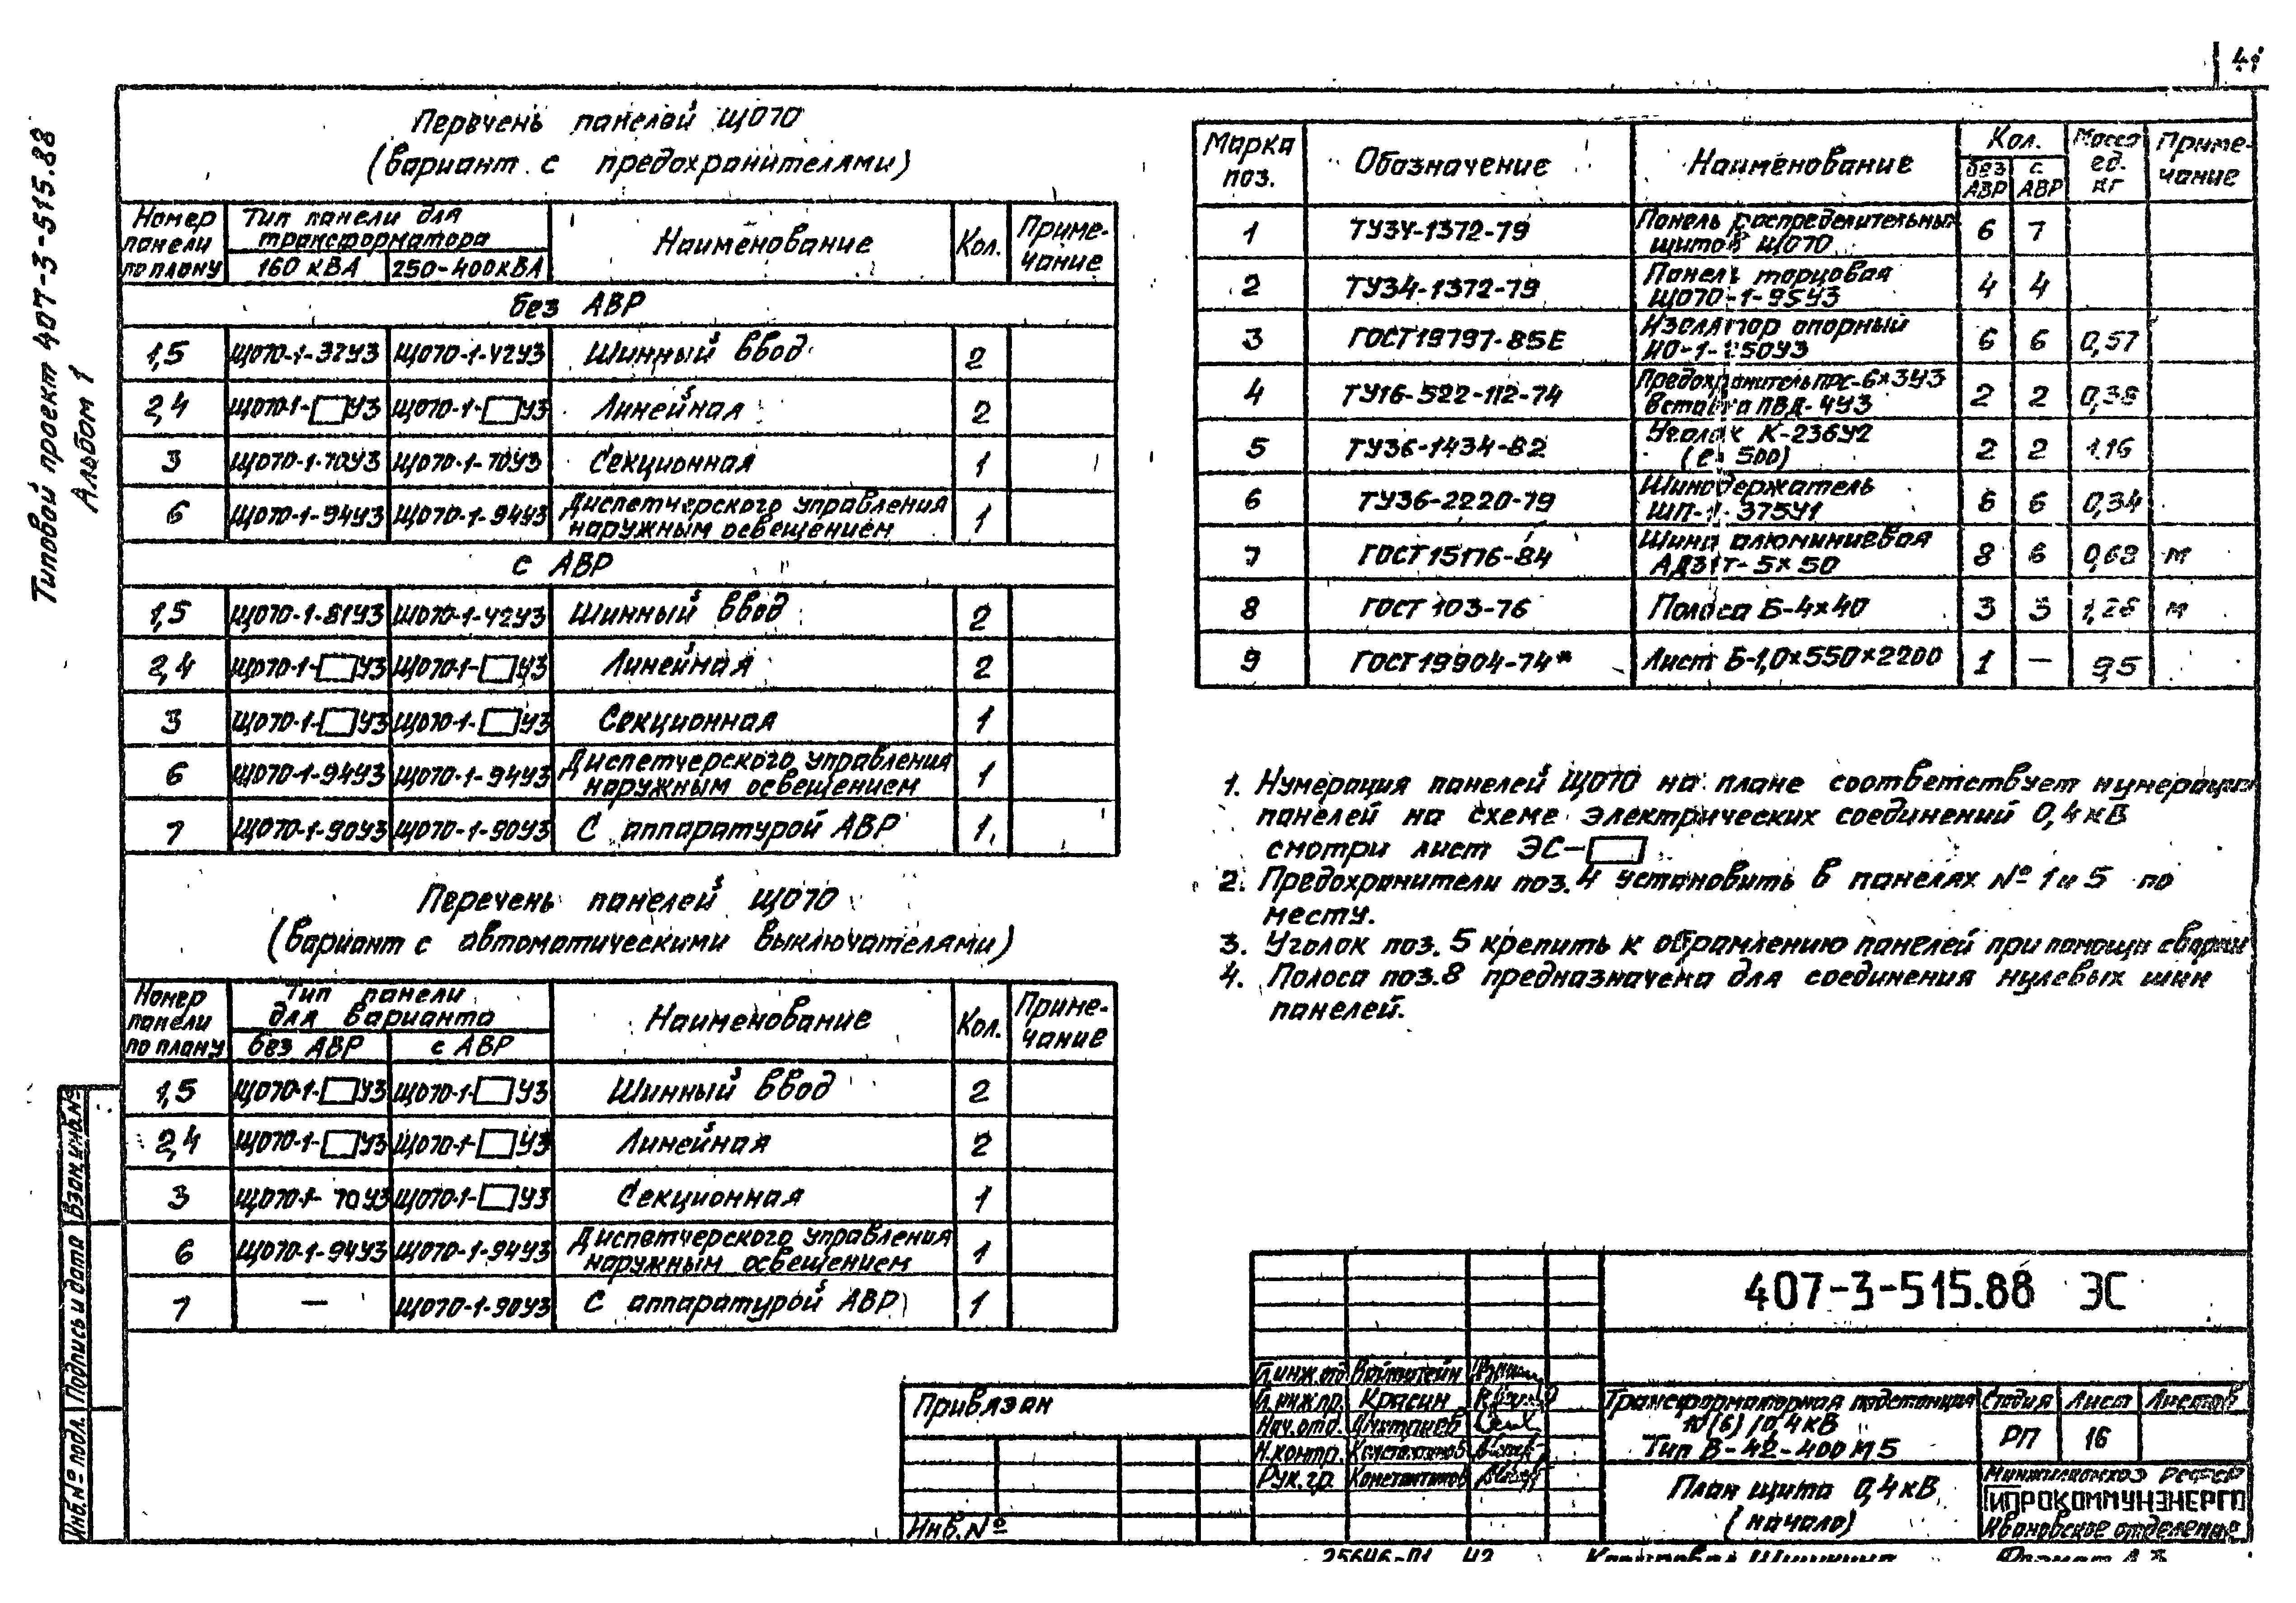 41
Типовой проект 407-3-515.88
Альбом 1
Перечень панелей ЩО70
(вариант с предохранителями)
Номер панели по плану | Тип панели для трансформатора | Наименование | Кол. | Примечание
160 кВА | 250-400кВА
без АВР
1,5 ЩО70-1-32У3 ЩО70-1-42У3 Шинный ввод 2
2,4 ЩО70-1-□У3 ЩО70-1-□У3 Линейная 2
3 ЩО70-1-70У3 ЩО70-1-70У3 Секционная 1
6 ЩО70-1-94У3 ЩО70-1-94У3 Диспетчерского управления наружным освещением 1
с АВР
1,5 ЩО70-1-81У3 ЩО70-1-42У3 Шинный ввод 2
2,4 ЩО70-1-□У3 ЩО70-1-□У3 Линейная 2
3 ЩО70-1-□У3 ЩО70-1-□У3 Секционная 1
6 ЩО70-1-94У3 ЩО70-1-94У3 Диспетчерского управления наружным освещением 1
7 ЩО70-1-90У3 ЩО70-1-90У3 С аппаратурой АВР 1
Перечень панелей ЩО70
(вариант с автоматическими выключателями)
Номер панели по плану | Тип панели для варианта | Наименование | Кол. | Примечание
без АВР | с АВР
1,5 ЩО70-1-□У3 ЩО70-1-□У3 Шинный ввод 2
2,4 ЩО70-1-□У3 ЩО70-1-□У3 Линейная 2
3 ЩО70-1-70У3 ЩО70-1-□У3 Секционная 1
6 ЩО70-1-94У3 ЩО70-1-94У3 Диспетчерского управления наружным освещением 1
7 — ЩО70-1-90У3 С аппаратурой АВР 1
Марка поз. | Обозначение | Наименование | Кол. | Масса ед. кг | Примечание
без АВР | с АВР
1 ТУ34-1372-79 Панель распределительных щитов ЩО70 6 7
2 ТУ34-1372-79 Панель торцовая ЩО70-1-95У3 4 4
3 ГОСТ19797-85Е Изолятор опорный ИО-1-250У3 6 6 0,57
4 ТУ16-522-112-74 Предохранитель ПРС-6×3У3 вставка ПВД-4У3 2 2 0,38
5 ТУ36-1434-82 Уголок К-236У2 (ℓ=500) 2 2 1,16
6 ТУ36-2220-79 Шинодержатель ШП-1-375У1 6 6 0,34
7 ГОСТ15176-84 Шина алюминиевая АД31Т-5×50 8 6 0,68 м
8 ГОСТ 103-76 Полоса Б-4×40 3 3 1,26 м
9 ГОСТ19904-74* Лист Б-1,0×550×2200 1 — 9,5
1. Нумерация панелей ЩО70 на плане соответствует нумерации
панелей на схеме электрических соединений 0,4кВ
смотри лист ЭС-□
2. Предохранители поз.4 установить в панелях № 1 и 5 по
месту.
3. Уголок поз. 5 крепить к обрамлению панелей при помощи сварки
4. Полоса поз.8 предназначена для соединения нулевых шин
панелей.
Взам.инв.№
Подпись и дата
Инв.№ подл.
Привязан
Инв.№
407-3-515.88 ЭС
Гл.инж.отд.
Гл.инж.пр. Красин
Нач.отд. Дмитриев
Н.контр. Константинов
Рук.гр. Константинов
Трансформаторная подстанция
10(6)/0,4кВ
Тип В-42-400М5
Стадия Лист Листов
РП 16
План щита 0,4кВ
(начало)
Минжилкомхоз РСФСР
ГИПРОКОММУНЭНЕРГО
Ивановское отделение
25646-01 42 Копировал Шишкина Формат А3